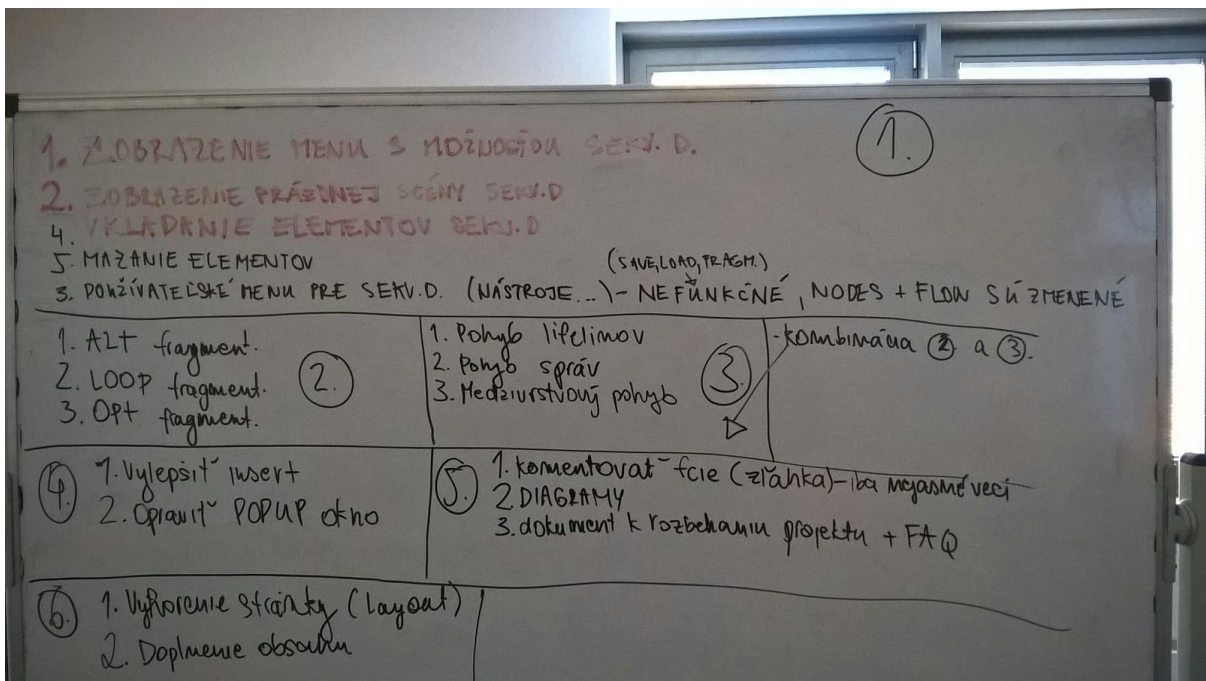 1.
1. ZOBRAZENIE MENU S MOŽNOSŤOU SEKV. D.
2. ZOBRAZENIE PRÁZDNEJ SCÉNY SEKV.D
4. VKLADANIE ELEMENTOV SEKV.D
5. MAZANIE ELEMENTOV
(SAVE, LOAD, FRAGM.)
3. POUŽÍVATEĽSKÉ MENU PRE SEKV.D. (NÁSTROJE...) - NEFUNKČNÉ, NODES + FLOW SÚ ZMENENÉ
2.
1. ALT fragment.
2. LOOP fragment.
3. Opt fragment.
3.
1. Pohyb lifelinov
2. Pohyb správ
3. Medzivrstvový pohyb
- kombinácia 2 a 3.
4.
1. Vylepšiť insert
2. Opraviť POPUP okno
5.
1. komentovať fcie (zľahka) - iba nejasné veci
2. DIAGRAMY
3. dokument k rozbehaniu projektu + FAQ
6.
1. Vytvorenie stránky (layout)
2. Doplnenie obsahu